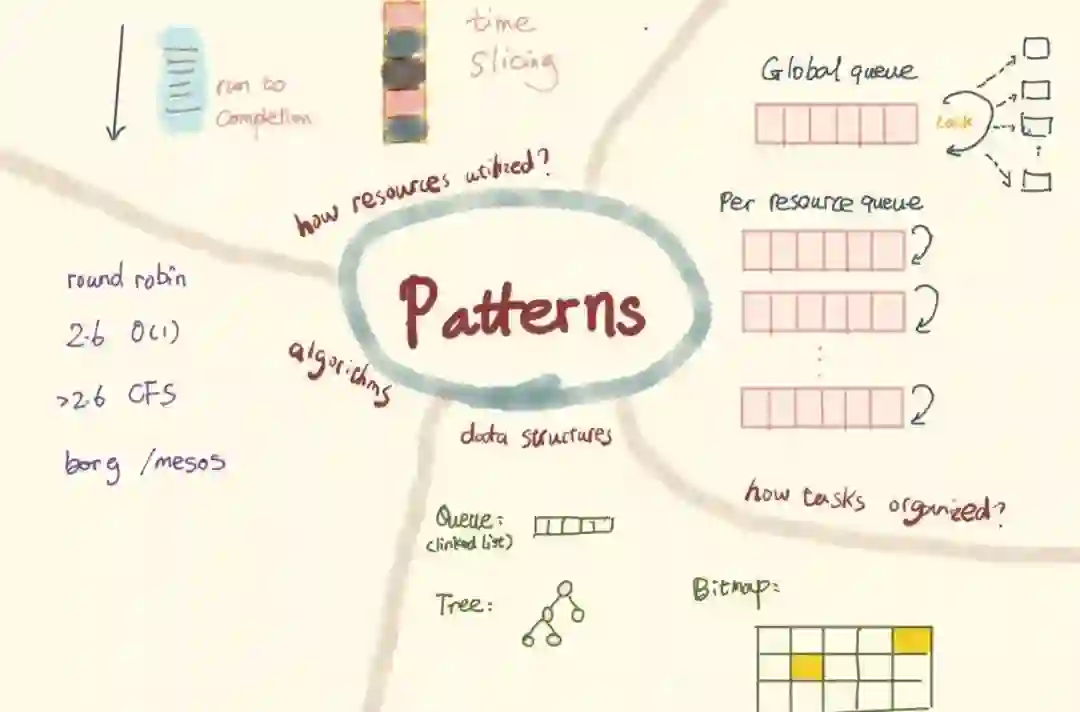 run to
completion
time
slicing
how resources utilized?
Global queue
task
Per resource queue
Patterns
round robin
2.6 O(1)
>2.6 CFS
borg /mesos
algorithms
data structures
Queue:
(linked list)
Tree:
how tasks organized?
Bitmap: